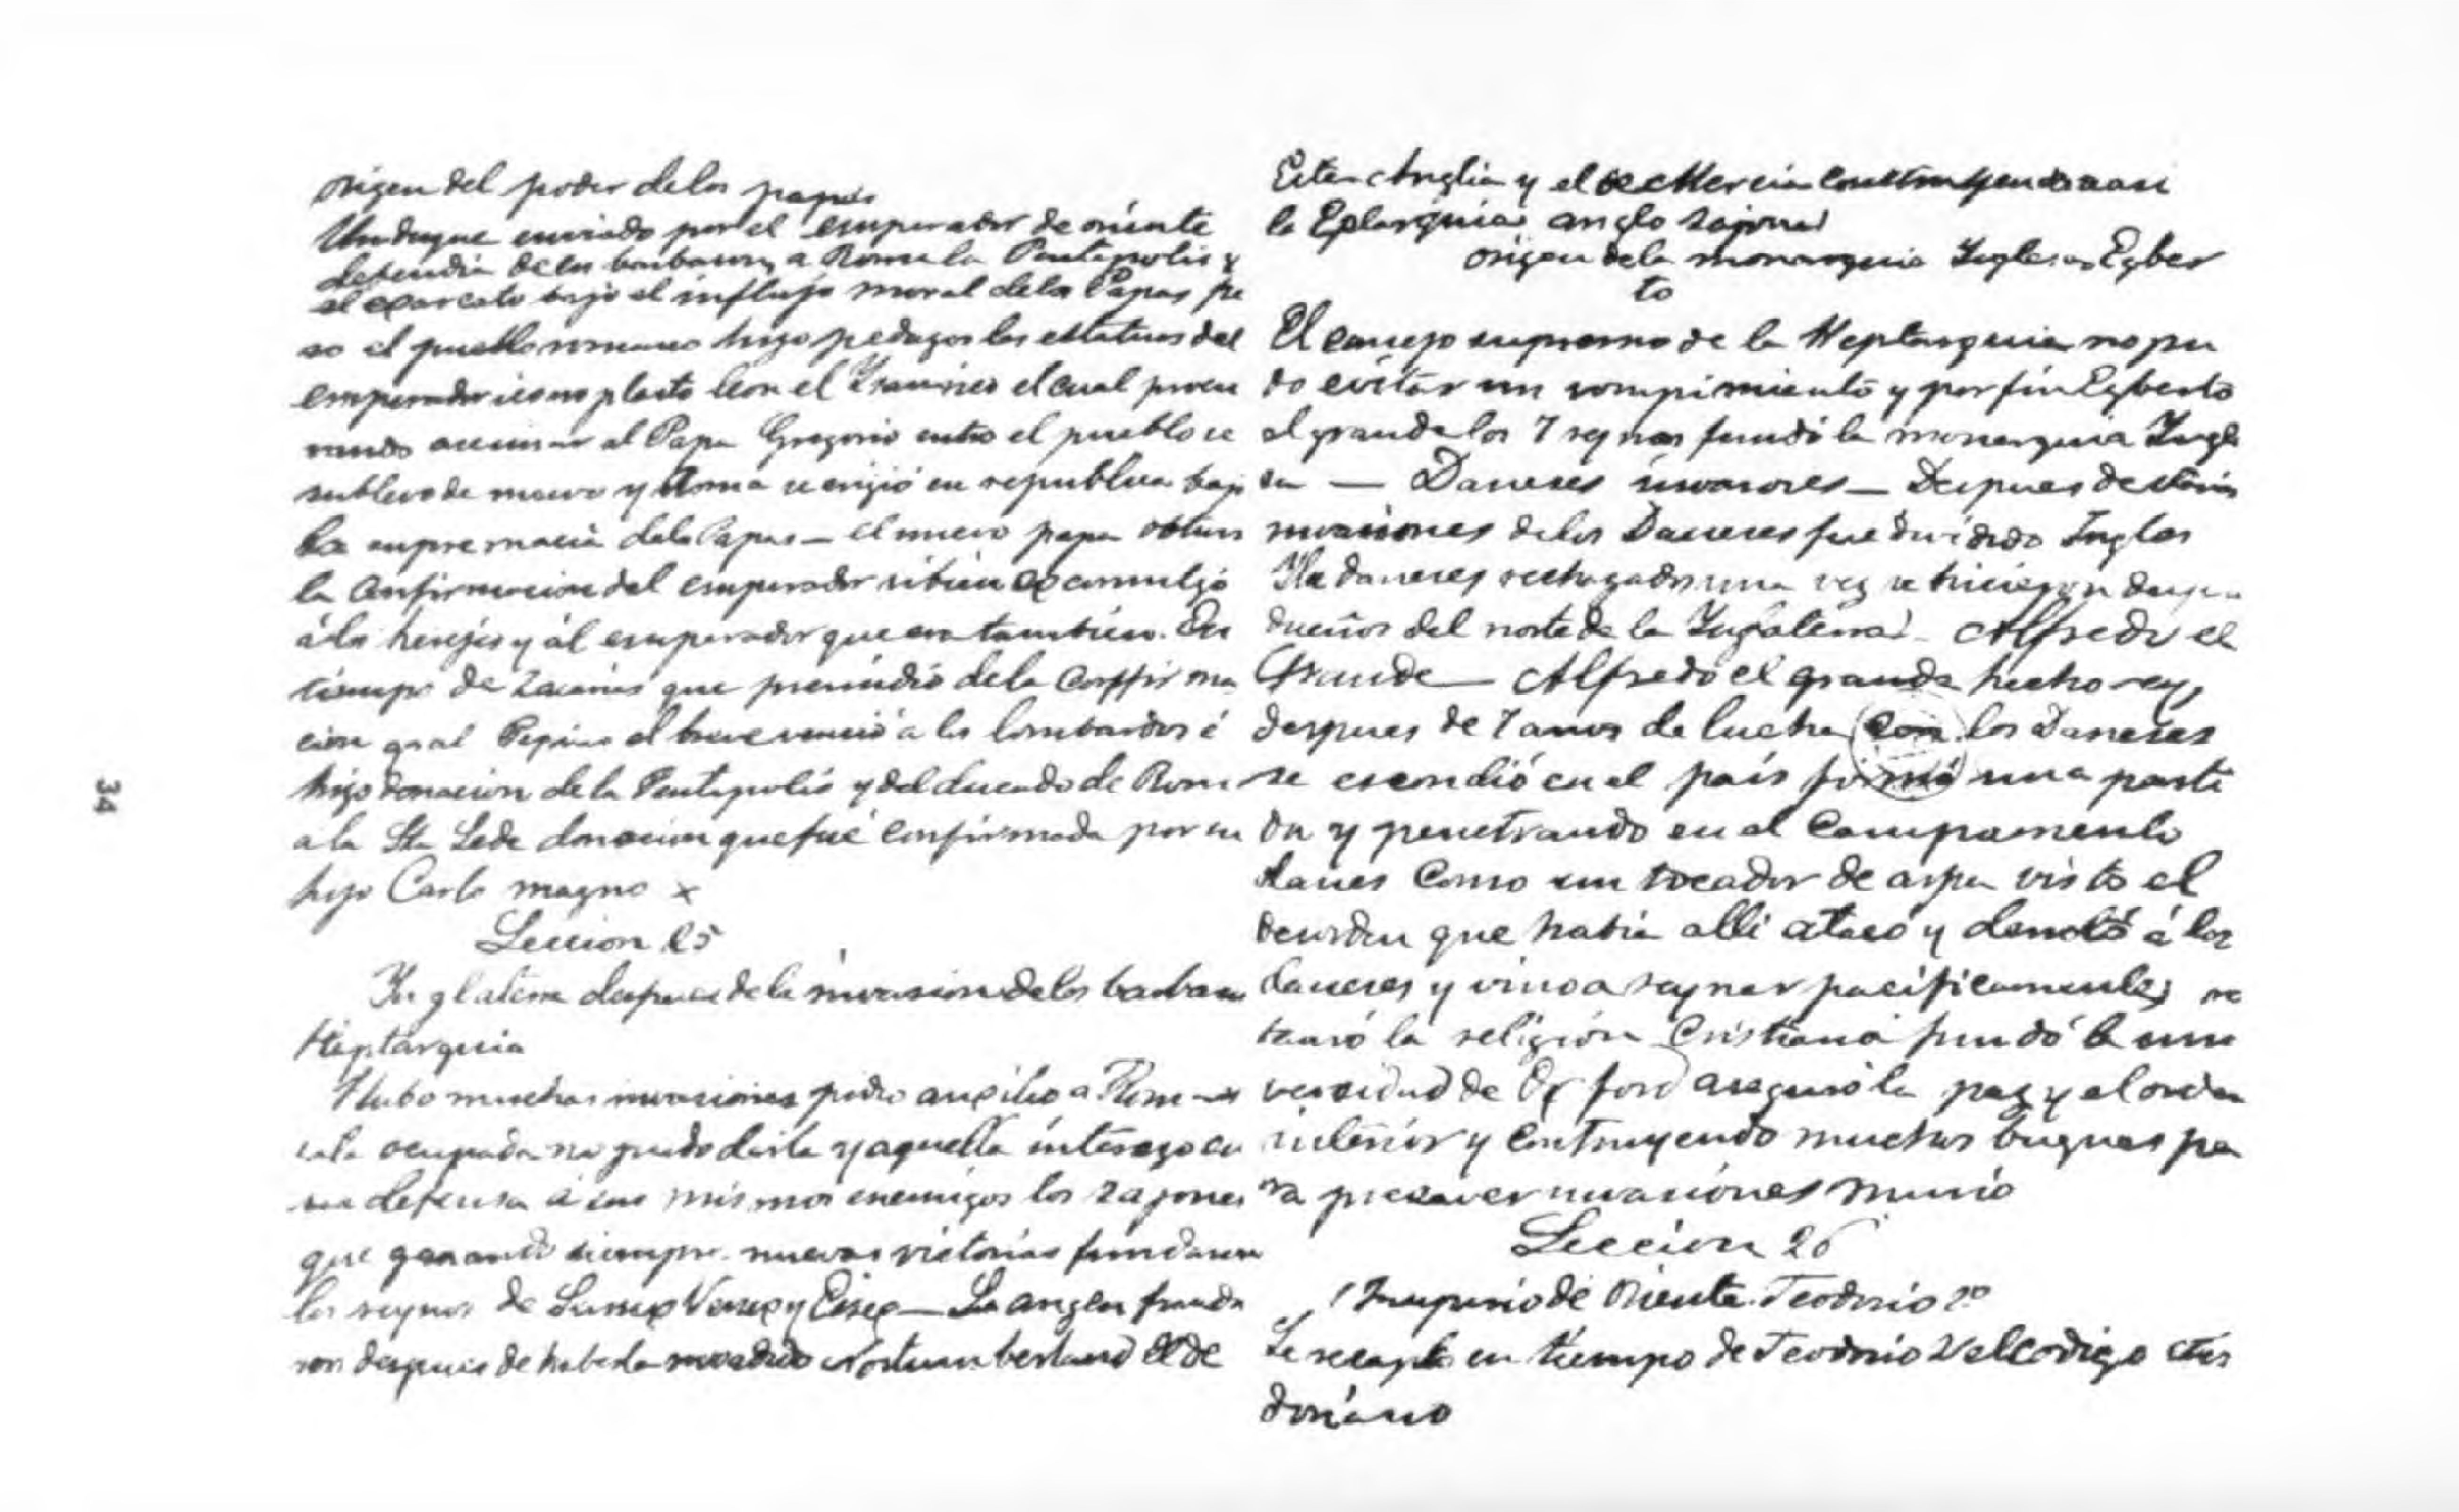 origen del poder de los papas
Un duque enviado por el emperador de oriente
defendia de los barbaros a Roma la Pentapolis y
el exarcato bajo el influjo moral de los Papas pe
ro el pueblo romano hizo pedazos las estatuas del
emperador iconoplasta leon el Isaurico el cual procu
rando acesinar al Papa Gregorio entro el pueblo se
sublevo de nuevo y Roma se erigió en republica bajo
la supremacia de los Papas — el nuevo papa obtuvo
la Confirmacion del emperador si bien excomulgó
á los herejes y ál emperador que era tambien. En
tiempo de Zacarias que precindió de la Conffirma
cion gral Pepino el breve venció a los lombardos é
hizo donacion de la Pentapolis y del ducado de Roma
a la Sta Sede donacion que fué confirmada por su
hijo Carlo magno x
Leccion 25
Inglaterra despues de la invasion de los barbaros
Heptarquia
Hubo muchas invasiones pidio auxilio a Roma
esta ocupada no pudo darla y aquella interezo en
su defensa á sus mismos enemigos los zajones
que ganando siempre nuevas victorias fundaron
los reynos de Sussex Vessex y Essex — Los anglos funda
ron despues de haberla invadido Nortumberland el de
Esten Anglia y el de Mercia Constituyendo asi
la Eptarquia anglo sajona
origen de la monarquia Inglesa Egber
to
El consejo supremo de la Heptarquia no pu
do evitar un rompimiento y por fin Egberto
el grande los 7 reynos fundó la monarquia Ingle
sa — Daneses invasores — Despues de varias
invasiones de los Daneses fue dividida Ingla
Ila daneses rechazados una vez se hicieron despues
dueños del norte de la Inglaterra — Alfredo el
Grande — Alfredo el grande hecho rey,
despues de 7 anos de lucha con los Daneses
se escondió en el país formó una parti
da y penetrando en el Campamento
danes Como un tocador de arpa visto el
desorden que habia alli atacó y derrotó á los
daneses y vino a reynar pacificamente; res
tauró la religión Cristiana fundó la uni
versidad de Oxford aseguró la paz y el orden
interiór y Contruyendo muchos buques pa
ra precaver invasiónes murió
Leccion 26
Imperio de Oriente. Teodosio 2º
Se recopila en tiempo de Teodosio 2 el codigo Teo
dosiano